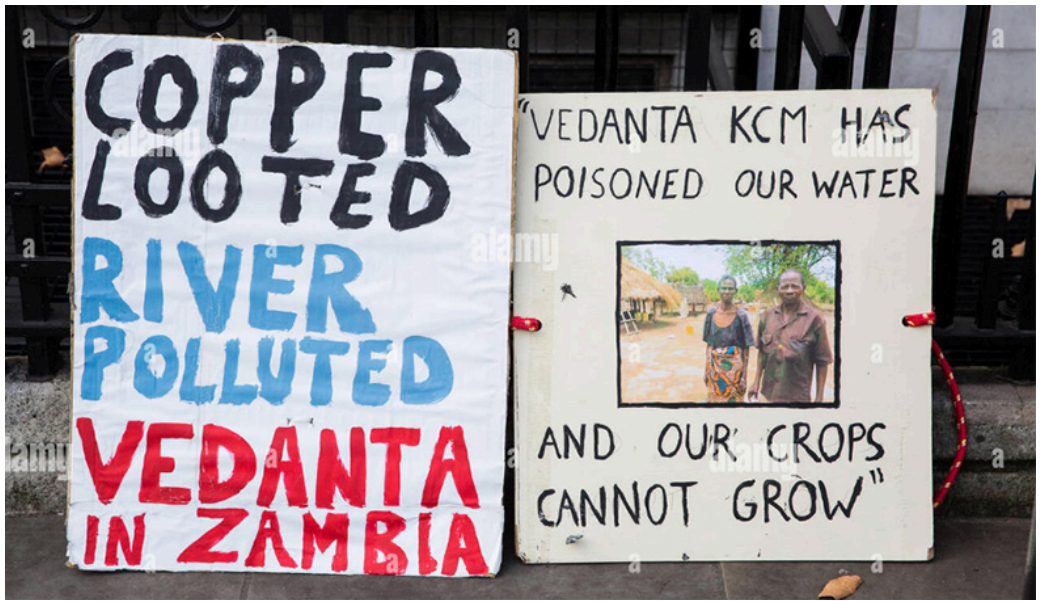 COPPER
LOOTED
RIVER
POLLUTED
VEDANTA
IN ZAMBIA
"VEDANTA KCM HAS
POISONED OUR WATER
AND OUR CROPS
CANNOT GROW"
alamy